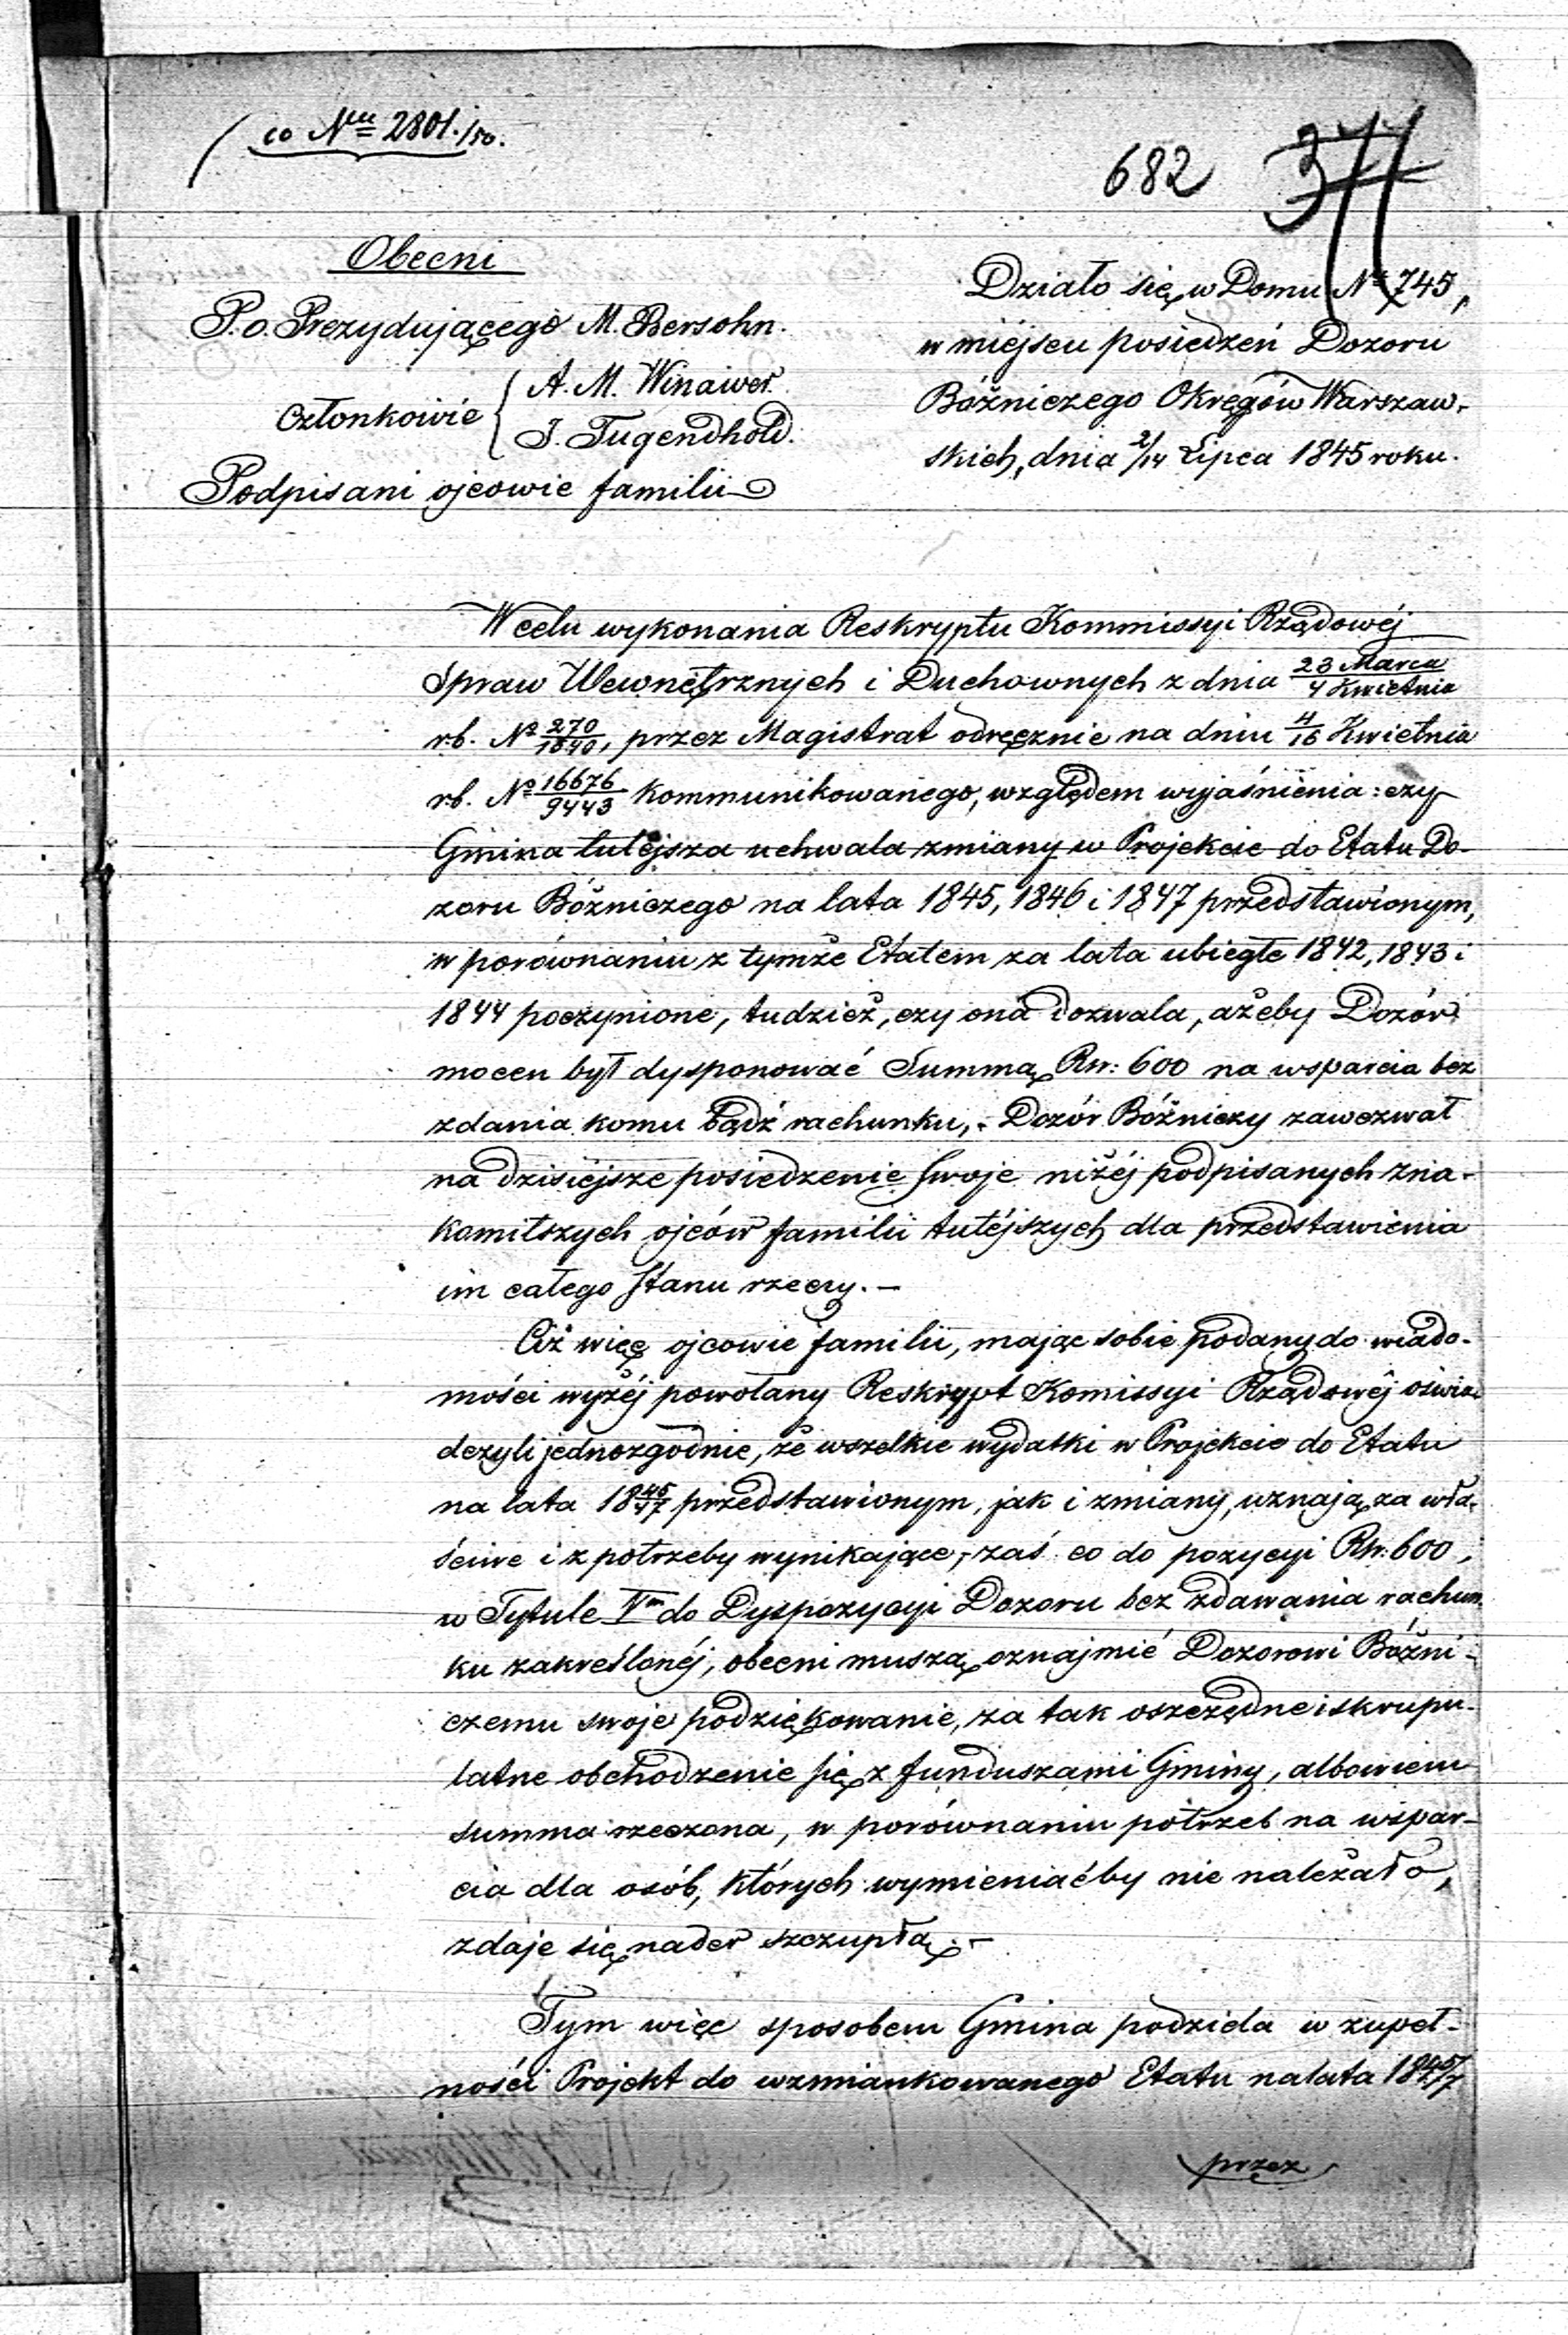 co Nru 2801./50.
682 377
Obecni
P. o. Prezydującego M. Bersohn.
Członkowie { A. M. Winawer.
J. Tugendhold.
Podpisani ojcowie familii
Działo się w Domu Nr 745,
w miéjscu posiedzeń Dozoru
Bóżniczego Okręgów Warszaw-
skich, dnia 2/14 Lipca 1845 roku.
W celu wykonania Reskryptu Kommissyi Rządowéj
Spraw Wewnętrznych i Duchownych z dnia 23 Marca / 4 Kwietnia
r.b. No 270/1840, przez Magistrat odręcznie na dniu 4/16 Kwietnia
r.b. No 16676/9443 kommunikowanego, względem wyjaśnienia: czy
Gmina tutéjsza uchwala zmiany w Projekcie do Etatu Do-
zoru Bóżniczego na lata 1845, 1846 i 1847 przedstawionym,
w porównaniu z tymże Etatem za lata ubiegłe 1842, 1843 i
1844 poczynione, tudzież, czy ona dozwala, ażeby Dozór
mocen był dysponować Summą Rsr: 600 na wsparcia bez
zdania komu bądź rachunku,- Dozór Bóżniczy zawezwał
na dzisiéjsze posiedzenie swoje niżéj podpisanych zna-
komitszych ojców familii tutéjszych dla przedstawienia
im całego stanu rzeczy.-
Ciż więc ojcowie familii, mając sobie podany do wiado-
mości wyżéj powołany Reskrypt Komissyi Rządowéj oświad-
dczyli jednozgodnie, że wszelkie wydatki w Projekcie do Etatu
na lata 1845/47 przedstawionym, jak i zmiany, uznają za wła-
ściwe i z potrzeby wynikające,- zaś co do pozycyi Rsr: 600,
w Tytule Vm do Dyspozycyi Dozoru bez zdawania rachun-
ku zakreślonéj, obecni muszą oznajmić Dozorowi Bóżni-
czemu swoje podziękowanie, za tak oszczędne i skrupu-
latne obchodzenie się z funduszami Gminy, albowiem
summa rzeczona, w porównaniu potrzeb na wspar-
cia dla osób, których wymieniaćby nie należało,
zdaje się nader szczupłą.-
Tym więc sposobem Gmina podziela w zupeł-
ności Projekt do wzmiankowanego Etatu na lata 1845/7
przez